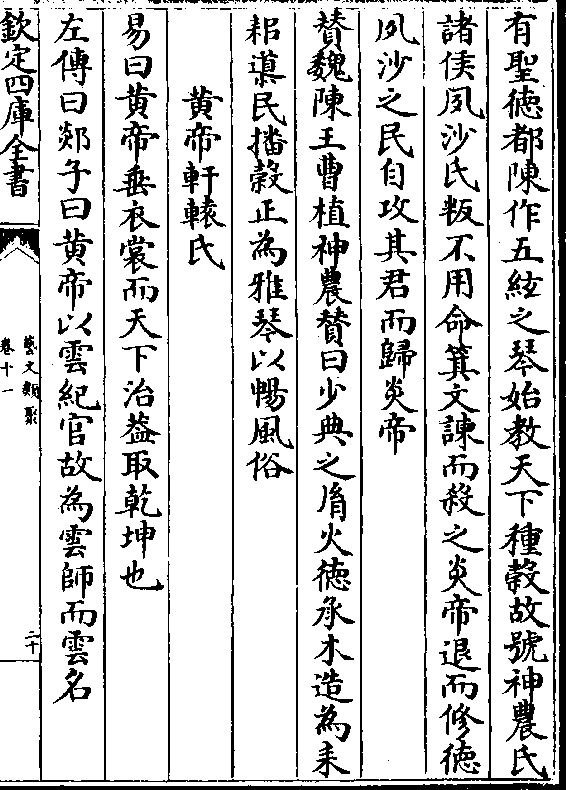 有聖徳都陳作五絃之琴始教天下種榖故號神農氏
諸侯夙沙氏叛不用命箕文諫而殺之炎帝退而修徳
夙沙之民自攻其君而歸炎帝
賛魏陳王曹植神農賛曰少典之𦙍火徳承木造為耒
耜導民播榖正為雅琴以暢風俗
黄帝軒轅氏
易曰黄帝垂衣裳而天下治葢取乾坤也
左傳曰郯子曰黄帝以雲紀官故為雲師而雲名
欽定四庫全書
藝文類聚
卷十一
二十